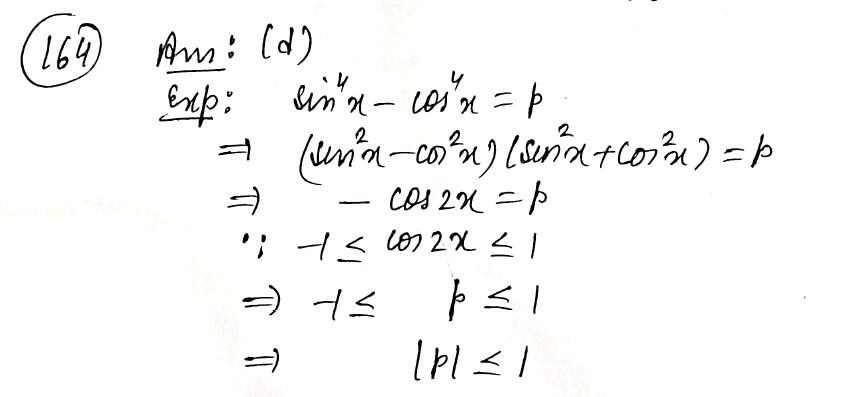 164 Ans: (d)
Exp: sin⁴x − cos⁴x = p
⇒ (sin²x − cos²x) (sin²x + cos²x) = p
⇒ − cos 2x = p
∵ −1 ≤ cos 2x ≤ 1
⇒ −1 ≤ p ≤ 1
⇒ |p| ≤ 1